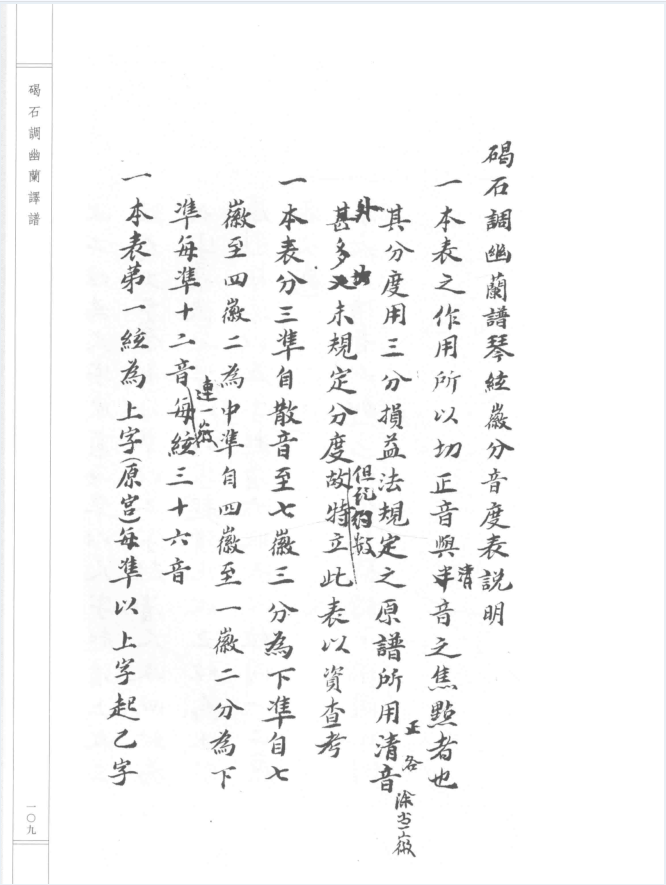 碣石調幽蘭譜琴絃徽分音度表説明
一本表之作用所以切正音與半音之焦點者也
清
其分度用三分損益法規定之原譜所用清音
正各除当徽
外故
甚多又未規定分度故特立此表以資查考
但說約数
一本表分三準自散音至七徽三分為下準自七
徽至四徽二為中準自四徽至一徽二分為下
連一徽
準每準十二音每絃三十六音
一本表第一絃為上字(原宮)每準以上字起乙字
碣石調幽蘭譯譜
一〇九